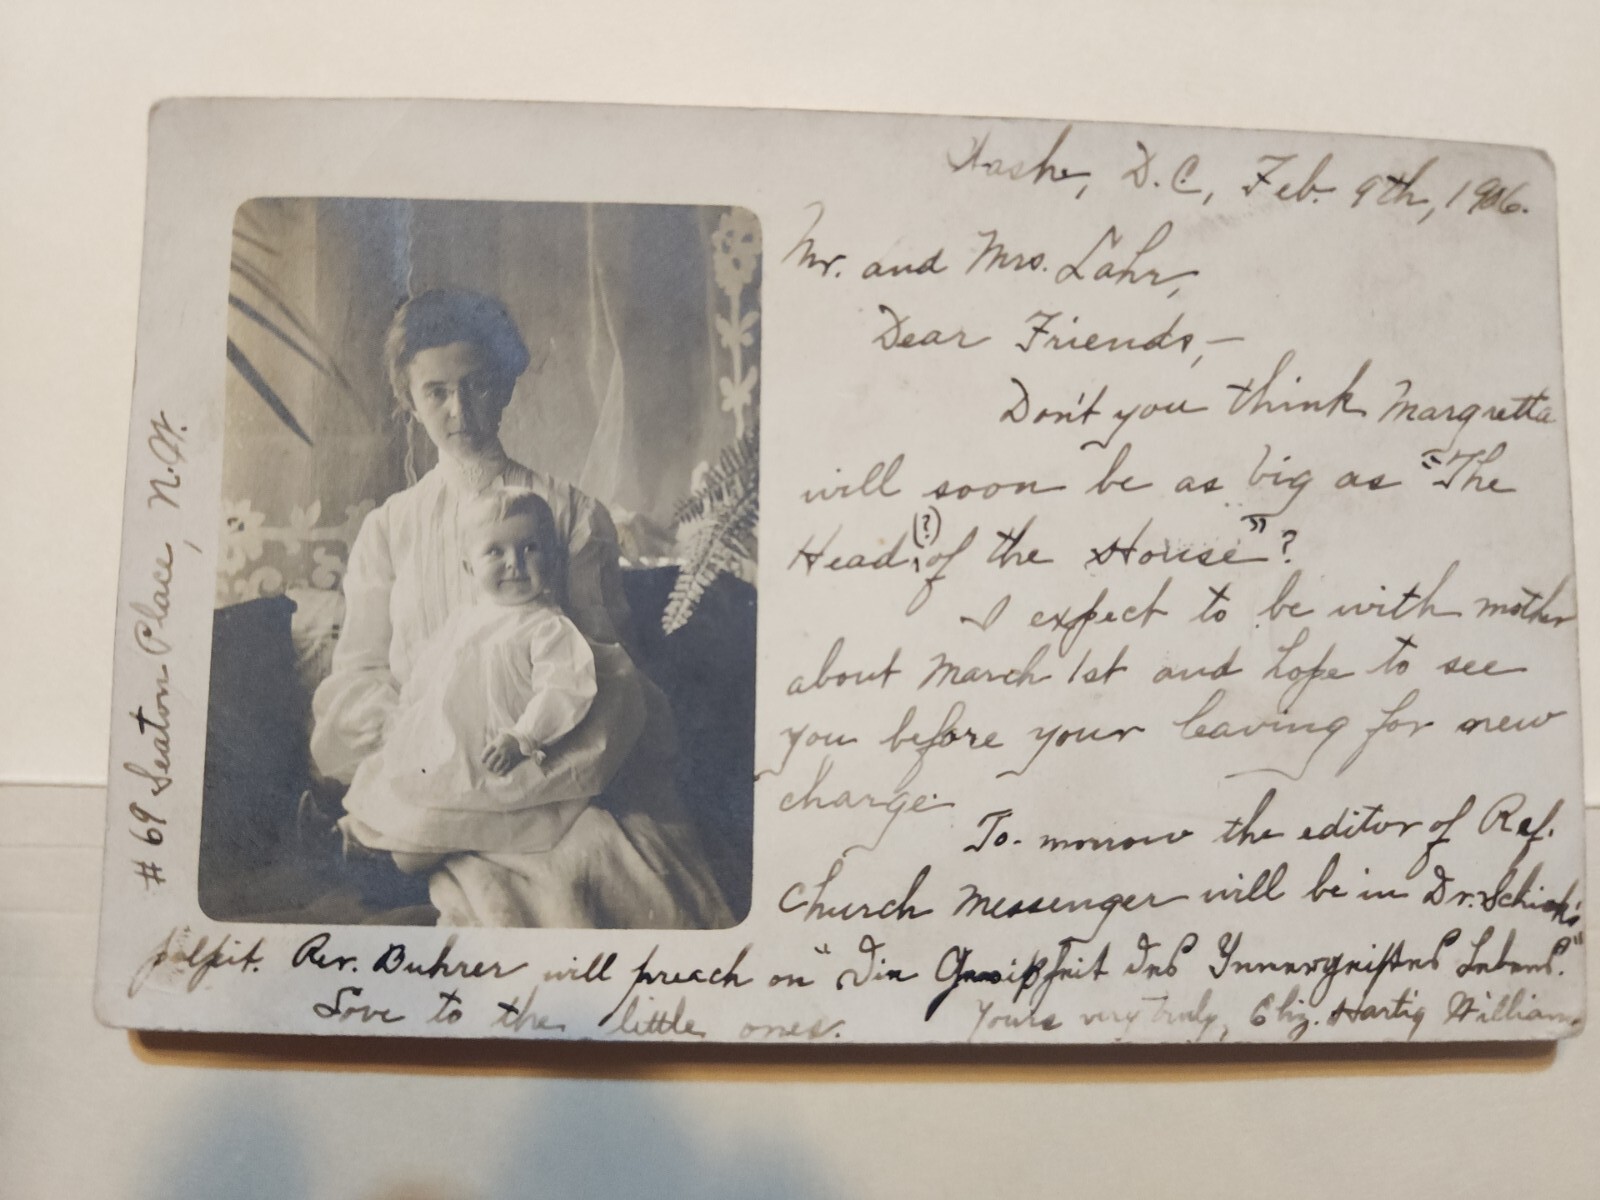 Washn, D.C., Feb. 9th, 1906.
Mr. and Mrs. Lahr,
Dear Friends,—
Don't you think Margretta
will soon be as big as "The
Head (?) of the House"?
I expect to be with mother
about March 1st and hope to see
you before your leaving for new
charge.
To-morrow the editor of Ref.
Church Messenger will be in Dr. Schick's
pulpit. Rev. Buhrer will preach on "Die des Lebens."
Love to the little ones. Yours very truly, Eliz. Hartig Williams
#69 Seaton Place, N.W.